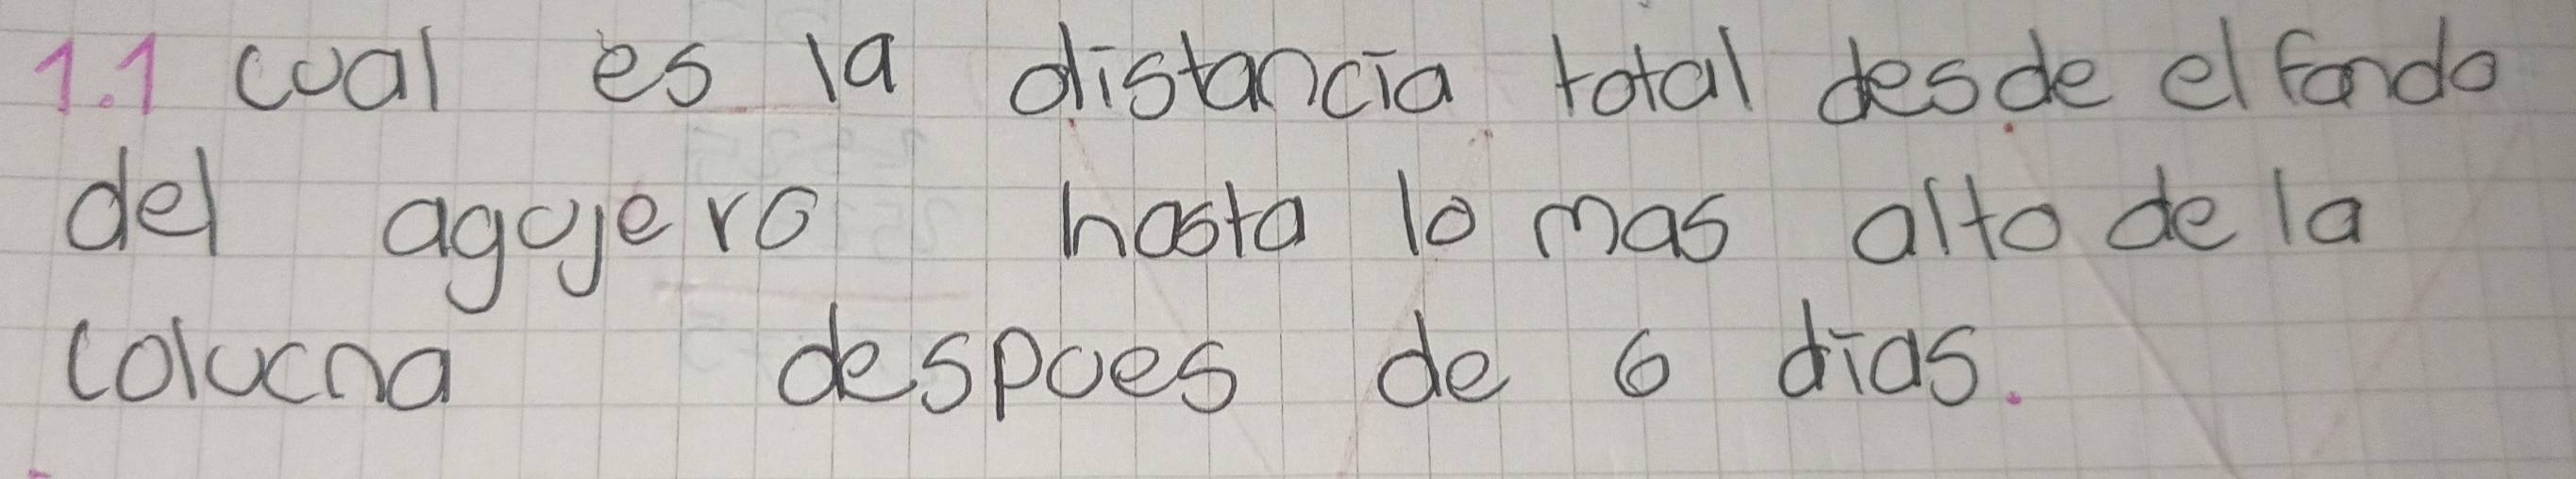 1.1 cual es la distancia total desde el fondo
del agujero hasta lo mas alto de la
colucna despues de 6 días.